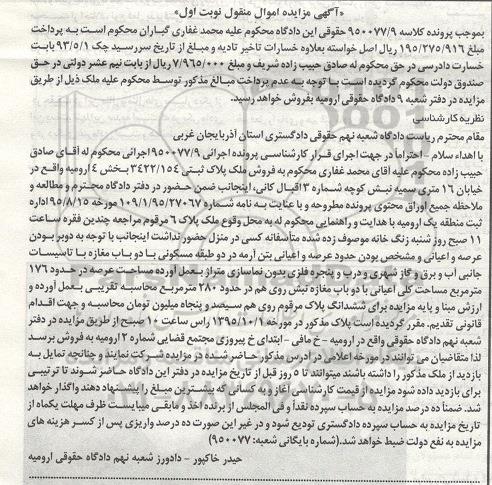 «آگهی مزایده اموال منقول نوبت اول»
بموجب پرونده کلاسه ۹۵۰۰۷۷/۹ حقوقی این دادگاه محکوم علیه محمد غفاری گیاران محکوم است به پرداخت
مبلغ ۱۹۵/۲۷۵/۹۱۶ ریال اصل خواسته بعلاوه خسارات تاخیر تادیه و مبلغ از تاریخ سررسید چک ۹۳/۵/۱ بابت
خسارت دادرسی در حق محکوم له صادق حبیب زاده شریف و مبلغ ۷/۹۶۵/۰۰۰ ریال از بابت نیم عشر دولتی در حق
صندوق دولت محکوم گردیده است با توجه به عدم پرداخت مبالغ مذکور توسط محکوم علیه ملک ذیل از طریق
مزایده در دفتر شعبه ۹ دادگاه حقوقی ارومیه بفروش خواهد رسید.
نظریه کارشناسی
مقام محترم ریاست دادگاه شعبه نهم حقوقی دادگستری استان آذربایجان غربی
با اهداء سلام - احتراماً در جهت اجرای قرار کارشناسی پرونده اجرائی ۹۵۰۰۷۷/۹ اجرائی محکوم له آقای صادق
حبیب زاده محکوم علیه آقای محمد غفاری محکوم به فروش ملک پلاک ثبتی ۳۴۲۲/۱۵۴ بخش ۴ ارومیه واقع در
خیابان ۱۶ متری سمیه نبش کوچه شماره ۳ اقبال کانی، اینجانب ضمن حضور در دفتر دادگاه محترم و مطالعه و
ملاحظه جمیع اوراق محتوی پرونده مطروحه و با عنایت به نامه شماره ۱۰۹/۱/۹۵/۲۷۰۶۷ مورخه ۹۵/۸/۱۵ اداره
ثبت منطقه یک ارومیه با هدایت و راهنمایی محکوم له به محل وقوع ملک پلاک ۶ مرقوم مراجعه چندین فقره ساعت
۱۱ صبح روز شنبه زنگ خانه موصوف زده شده متأسفانه کسی در منزل حضور نداشت اینجانب با توجه به دوبر بودن
عرصه و اعیانی و مشخص بودن حدود عرصه و اعیانی بتن آرمه در دو طبقه مسکونی با دو باب مغازه با تاسیسات
جانبی آب و برق و گاز شهری و درب و پنجره فلزی بدون نماسازی متراژ بعمل آورده مساحت عرصه در حدود ۱۷۶
مترمربع مساحت کلی اعیانی با دو باب مغازه نبش روی هم در حدود ۲۸۰ مترمربع محاسبه تقریبی بعمل آورده و
ارزش مبنا و پایه مزایده برای ششدانگ پلاک مرقوم روی هم سیصد و پنجاه میلیون تومان محاسبه و جهت اقدام
قانونی تقدیم. مقرر گردیده است پلاک مذکور در مورخه ۱۳۹۵/۱۰/۱ راس ساعت ۱۰ صبح از طریق مزایده در دفتر
شعبه نهم دادگاه حقوقی واقع در ارومیه - خ مافی - ابتدای خ پیروزی مجتمع قضایی شماره ۲ ارومیه به فروش برسد
لذا متقاضیان می توانند در مورخه اعلامی در آدرس مذکور حاضر شده در مزایده شرکت نمایند و چنانچه تمایل به
بازدید از ملک مذکور را داشته باشند میتوانند تا ۵ روز قبل از تاریخ مزایده در دفتر این دادگاه حاضر شوند تا ترتیبی
برای بازدید داده شود مزایده از قیمت کارشناسی آغاز و به کسانی که بیشترین مبلغ را پیشنهاد دهند واگذار خواهد
شد. ضمناً ده درصد مزایده به حساب سپرده نقداً و فی المجلس از برنده اخذ و مابقی میبایست ظرف مهلت یکماه از
تاریخ مزایده به حساب سپرده دادگستری تودیع شود و در غیر این صورت ده درصد واریزی پس از کسر هزینه های
مزایده به نفع دولت ضبط خواهد شد.(شماره بایگانی شعبه: ۹۵۰۰۷۷)
حیدر خاکپور - دادورز شعبه نهم دادگاه حقوقی ارومیه